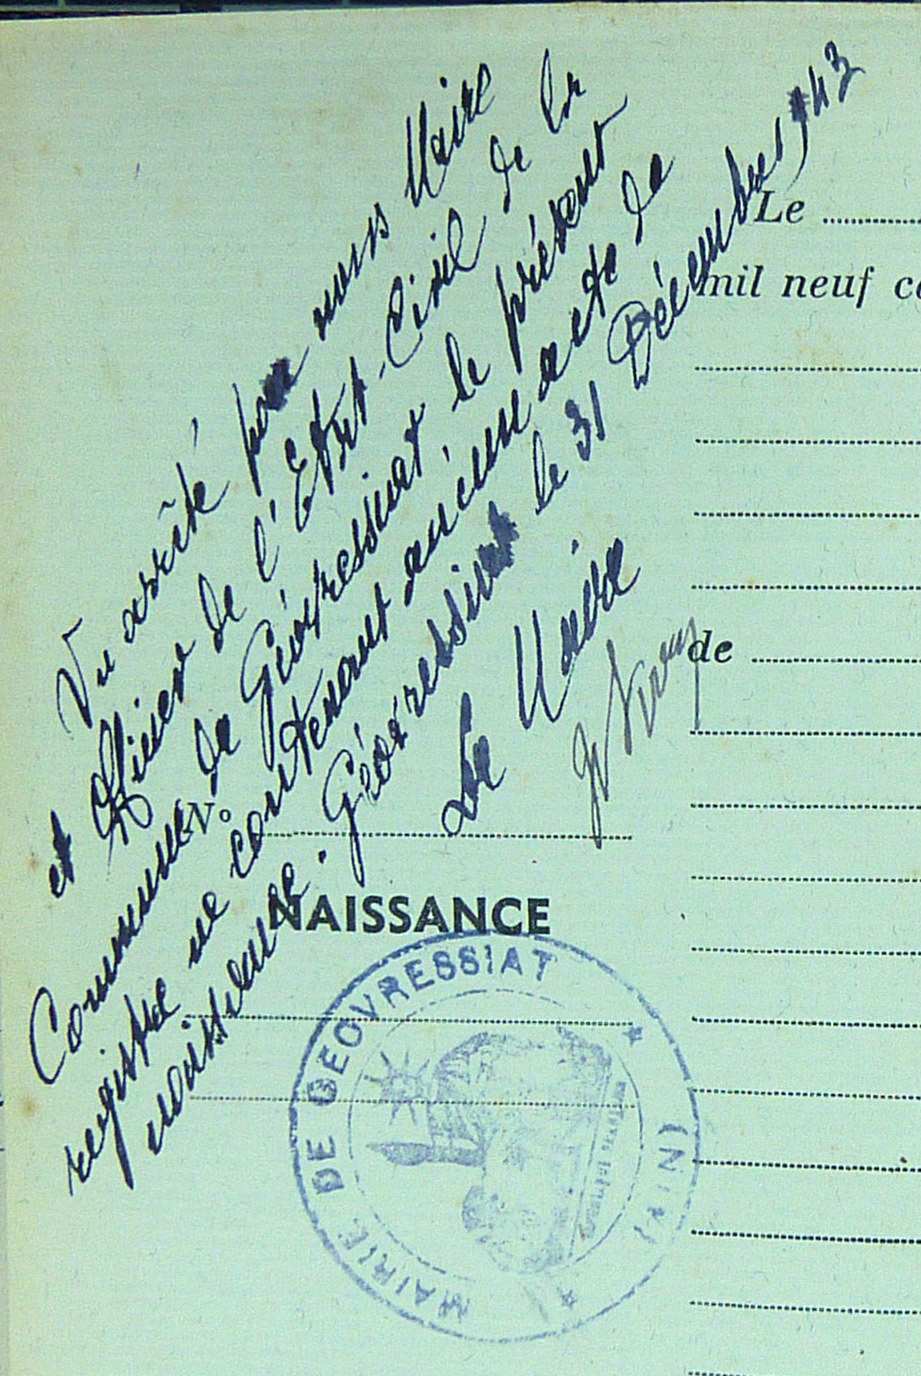 Vu arrêté par nous Maire
et Officier de l'Etat-Civil de la
Commune de Géovressiat, le présent
registre ne contenant aucun acte de
naissance. Géovressiat le 31 Décembre 1943
Le Maire
N°
NAISSANCE
MAIRIE DE GEOVRESSIAT
(AIN)
Le
mil neuf c
de